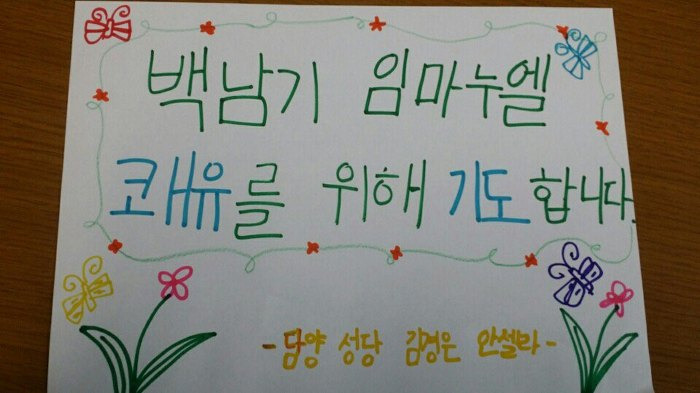 백남기 임마누엘
코애유를 위해 기도합니다.
- 담양 성당 김경은 안셀라 -